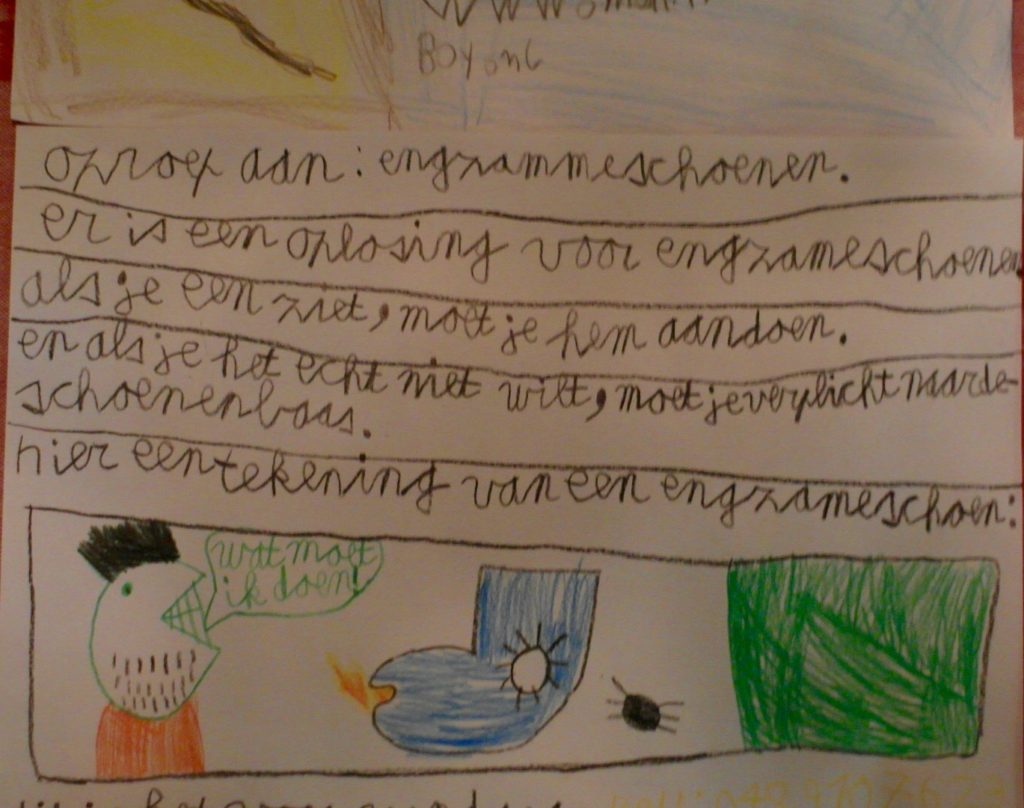 Boy.nl
oproep aan: engzammeschoenen.
er is een oplosing voor engzameschoenen
als je een ziet, moet je hem aandoen.
en als je het echt niet wilt, moet je verplicht naar de-
schoenenbaas.
hier een tekening van een engzameschoen:
wat moet
ik doen!